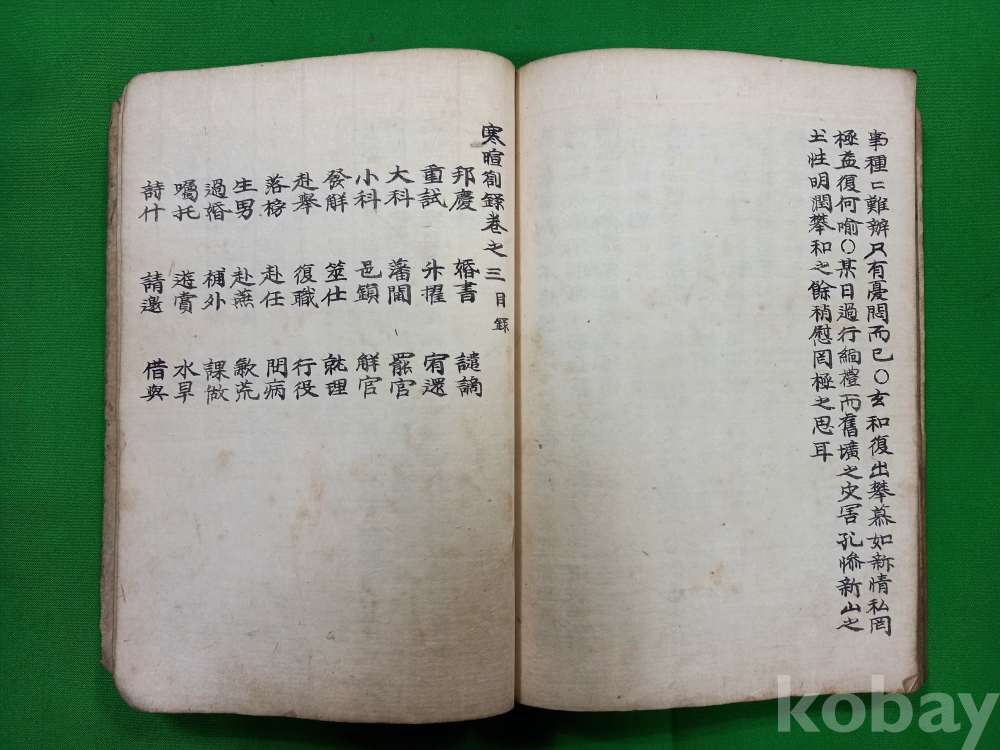 事種〻難辦只有憂悶而已〇玄和復出攀慕如新情私罔
極益復何喻〇某日過行緬禮而舊壙之灾害孔慘新山之
土性明潤攀和之餘稍慰罔極之思耳
寒暄箚錄卷之三目錄
邦慶 婚書 譴謫
重試 升擢 宥還
大科 藩閫 罷官
小科 邑鎮 解官
發解 筮仕 就理
赴擧 復職 行役
落榜 赴任 問病
生男 赴燕 歉荒
過婚 補外 課做
囑托 遊賞 水旱
詩什 請邀 借與
kobay